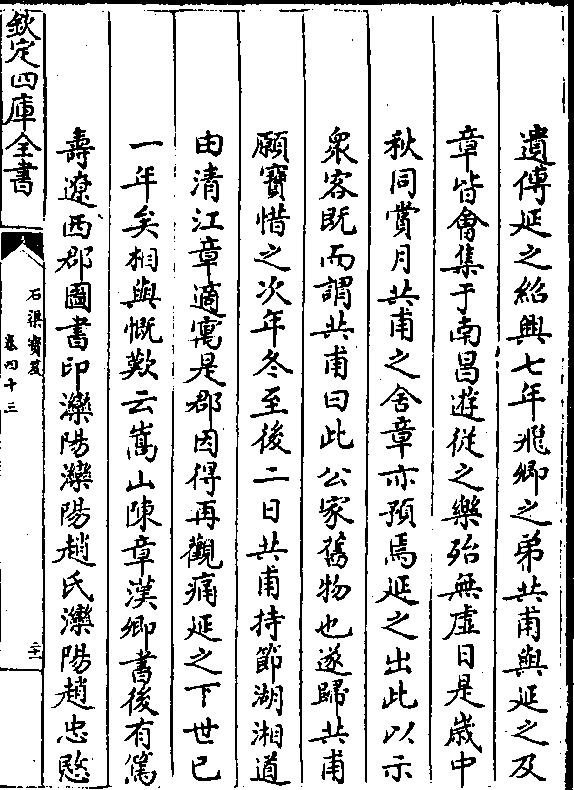 遺傳延之紹興七年飛卿之弟共甫與延之及
章皆會集于南昌遊從之樂殆無虚日是歲中
秋同賞月共甫之舍章亦預焉延之出此以示
衆客既而謂共甫曰此公家舊物也遂歸共甫
願寶惜之次年冬至後二日共甫持節湖湘道
由清江章適寓是郡因得再觀痛延之下世已
一年矣相與慨歎云嵩山陳章漢卿書後有篤
壽遼西郡圖書印灤陽灤陽趙氏灤陽趙忠愍
欽定四庫全書
石渠寶笈
卷四十三